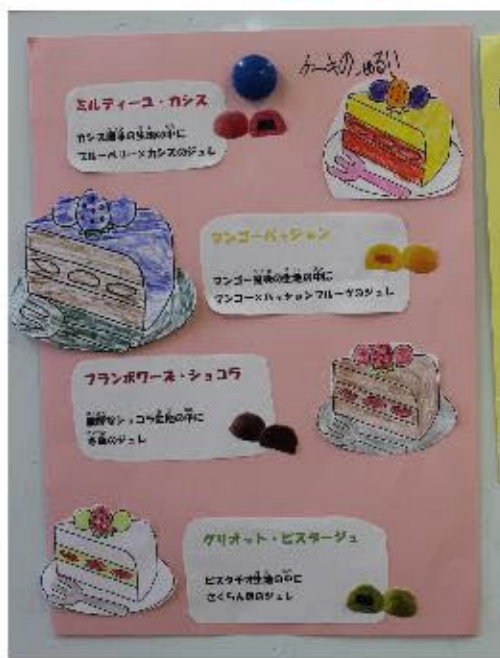 ケーキのしゅるい
ミルティーユ・カシス
カシス風味の生地の中に
ブルーベリー×カシスのジュレ
マンゴーパッション
マンゴー風味の生地の中に
マンゴー×パッションフルーツのジュレ
フランボワーズ・ショコラ
濃厚なショコラ生地の中に
のジュレ
グリオット・ピスターシュ
ピスタチオ生地の中に
さくらんぼのジュレ